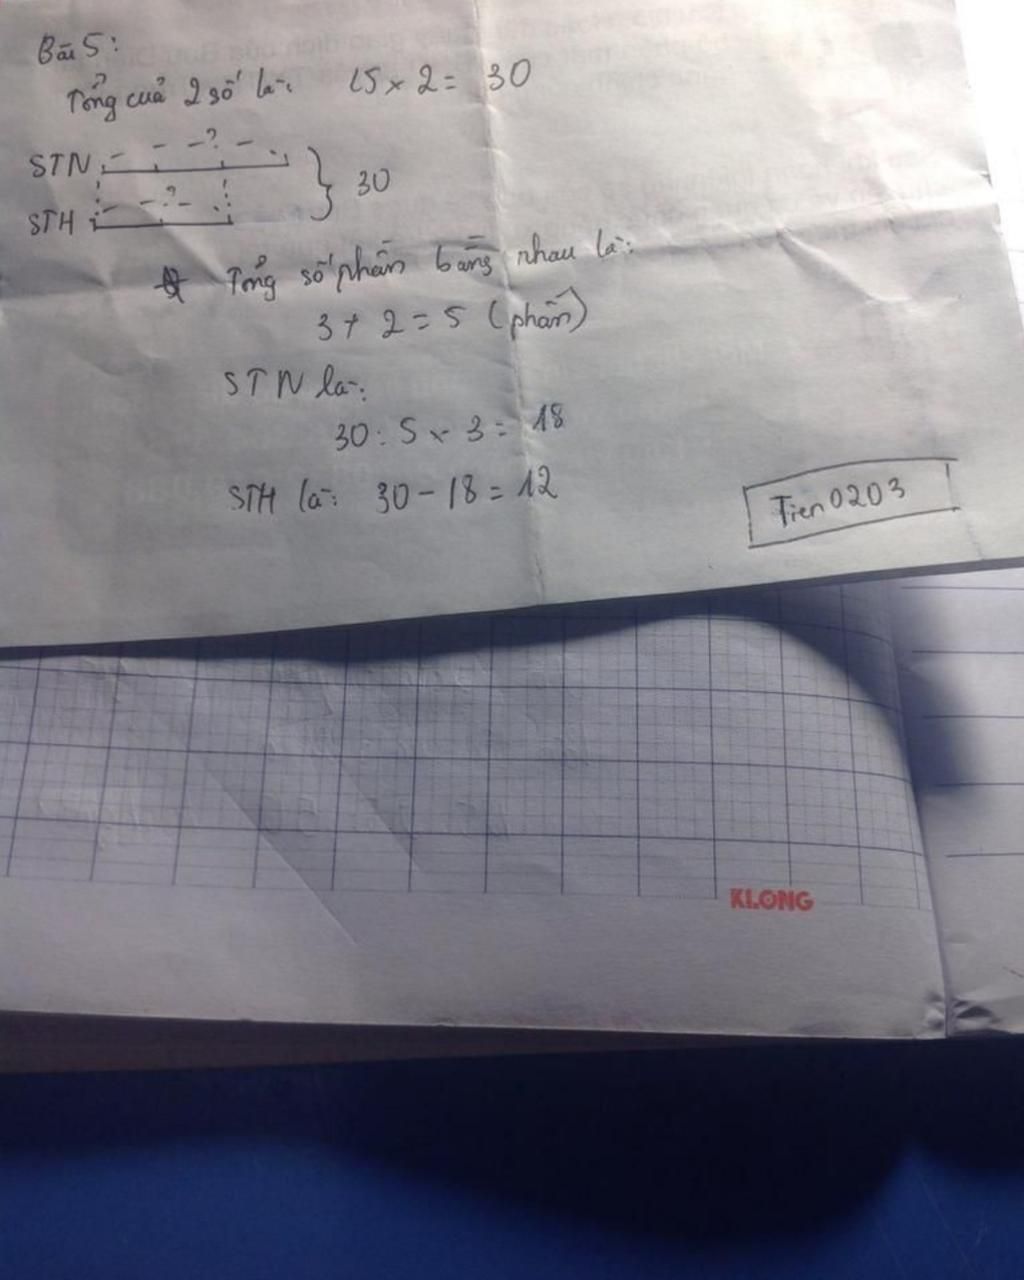 Bài 5:
Tổng của 2 số là: 15 x 2 = 30
?
STN
30
?
STH
Tổng số phần bằng nhau là:
3 + 2 = 5 (phần)
STN là:
30 : 5 x 3 = 18
STH là: 30 - 18 = 12
Tien0203
KLONG